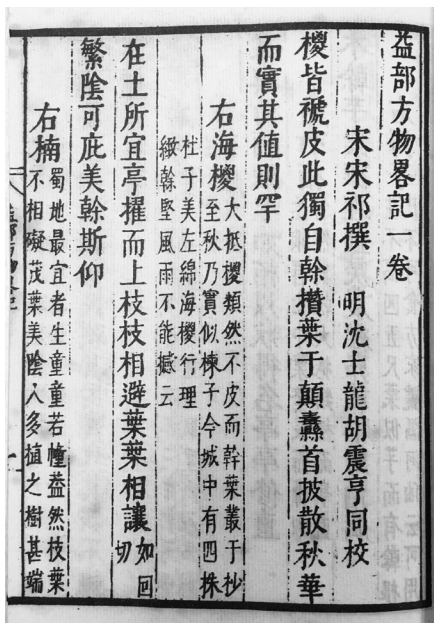 益部方物畧記一卷
宋宋祁撰　明沈士龍胡震亨同校
椶皆褫皮此獨自榦攢葉于顛纛首披散秋華
而實其值則罕
右海椶
大抵椶類然不皮而幹葉叢于杪
至秋乃實似楝子今城中有四株
杜子美左綿海椶行理
緻榦堅風雨不能撼云
在土所宜亭擢而上枝枝相避葉葉相讓
如回
切
繁陰可庇美榦斯仰
右楠
蜀地最宜者生童童若幢葢然枝葉
不相礙茂葉美陰人多植之樹甚端